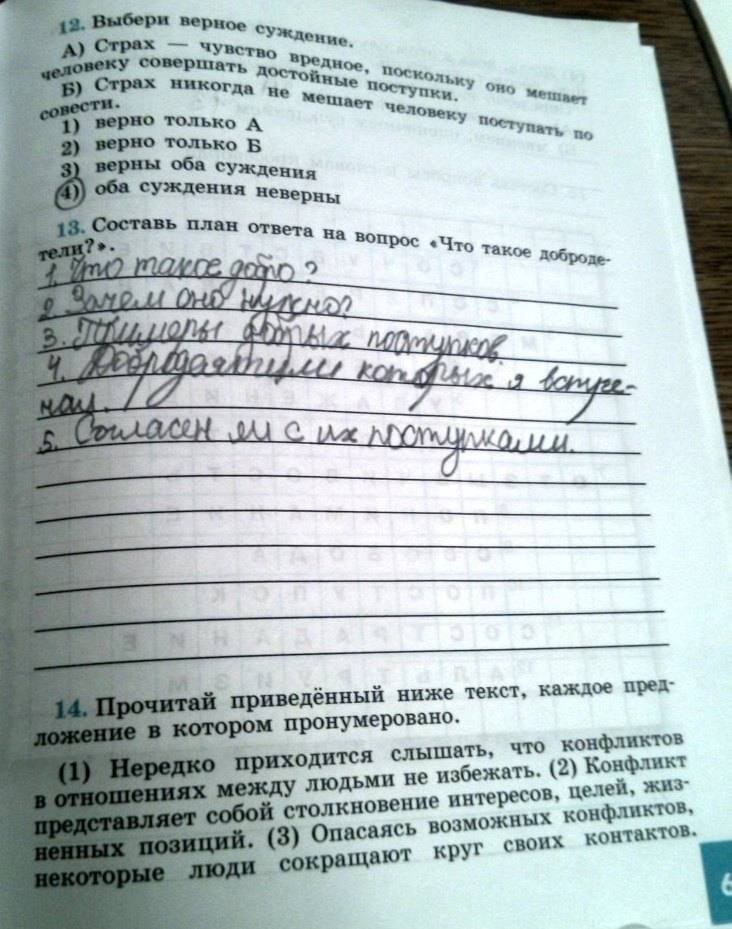 12. Выбери верное суждение.
А) Страх — чувство вредное, поскольку оно мешает
человеку совершать достойные поступки.
Б) Страх никогда не мешает человеку поступать по
совести.
1) верно только А
2) верно только Б
3) верны оба суждения
4) оба суждения неверны
13. Составь план ответа на вопрос «Что такое доброде-
тели?».
1. Что такое добро?
2. Зачем оно нужно?
3. Примеры добрых поступков.
4. которых я встре-
чал.
5. Согласен ли с их поступками.
14. Прочитай приведённый ниже текст, каждое пред-
ложение в котором пронумеровано.
(1) Нередко приходится слышать, что конфликтов
в отношениях между людьми не избежать. (2) Конфликт
представляет собой столкновение интересов, целей, жиз-
ненных позиций. (3) Опасаясь возможных конфликтов,
некоторые люди сокращают круг своих контактов.
6